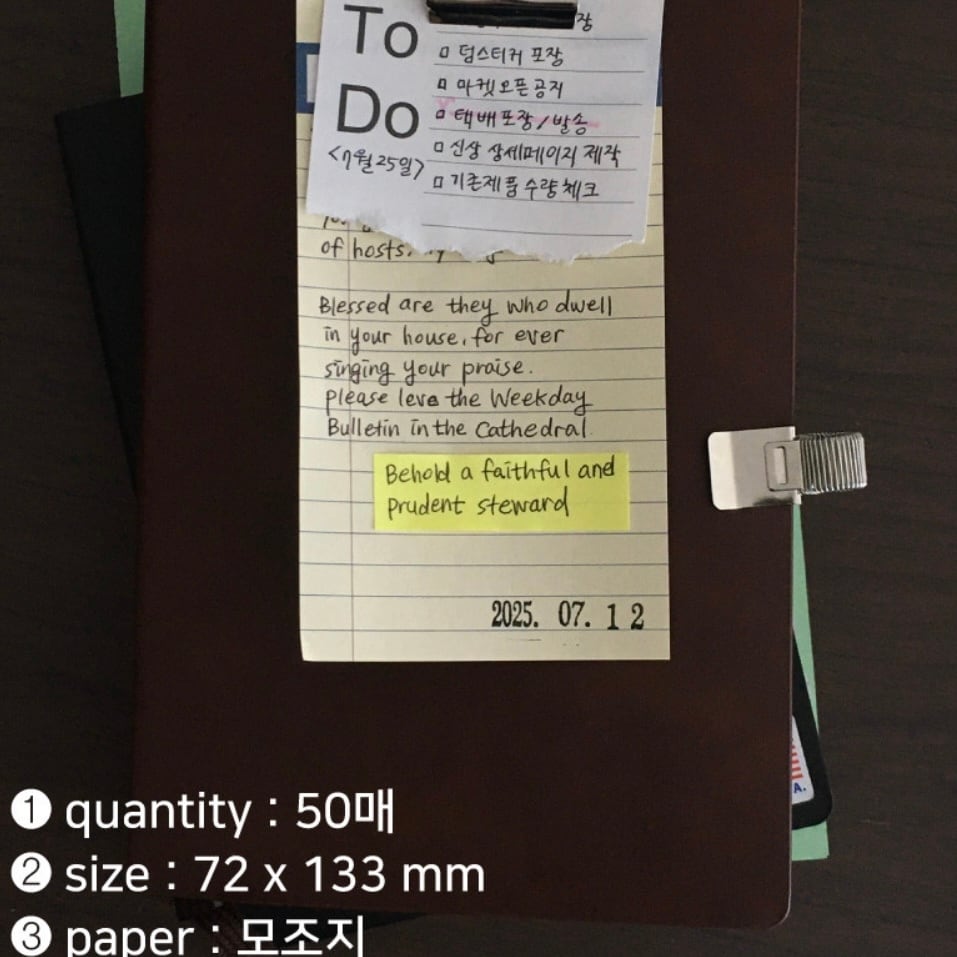 To
Do
<7월 25일>
장
□ 덤스티커 포장
□ 마켓오픈공지
□ 택배포장/발송
□ 신상 상세페이지 제작
□ 기존제품수량체크
of hosts,
Blessed are they who dwell
in your house, for ever
singing your praise.
please leve the Weekday
Bulletin in the Cathedral.
Behold a faithful and
prudent steward
2025. 07. 12
A.
❶ quantity : 50매
❷ size : 72 x 133 mm
❸ paper : 모조지